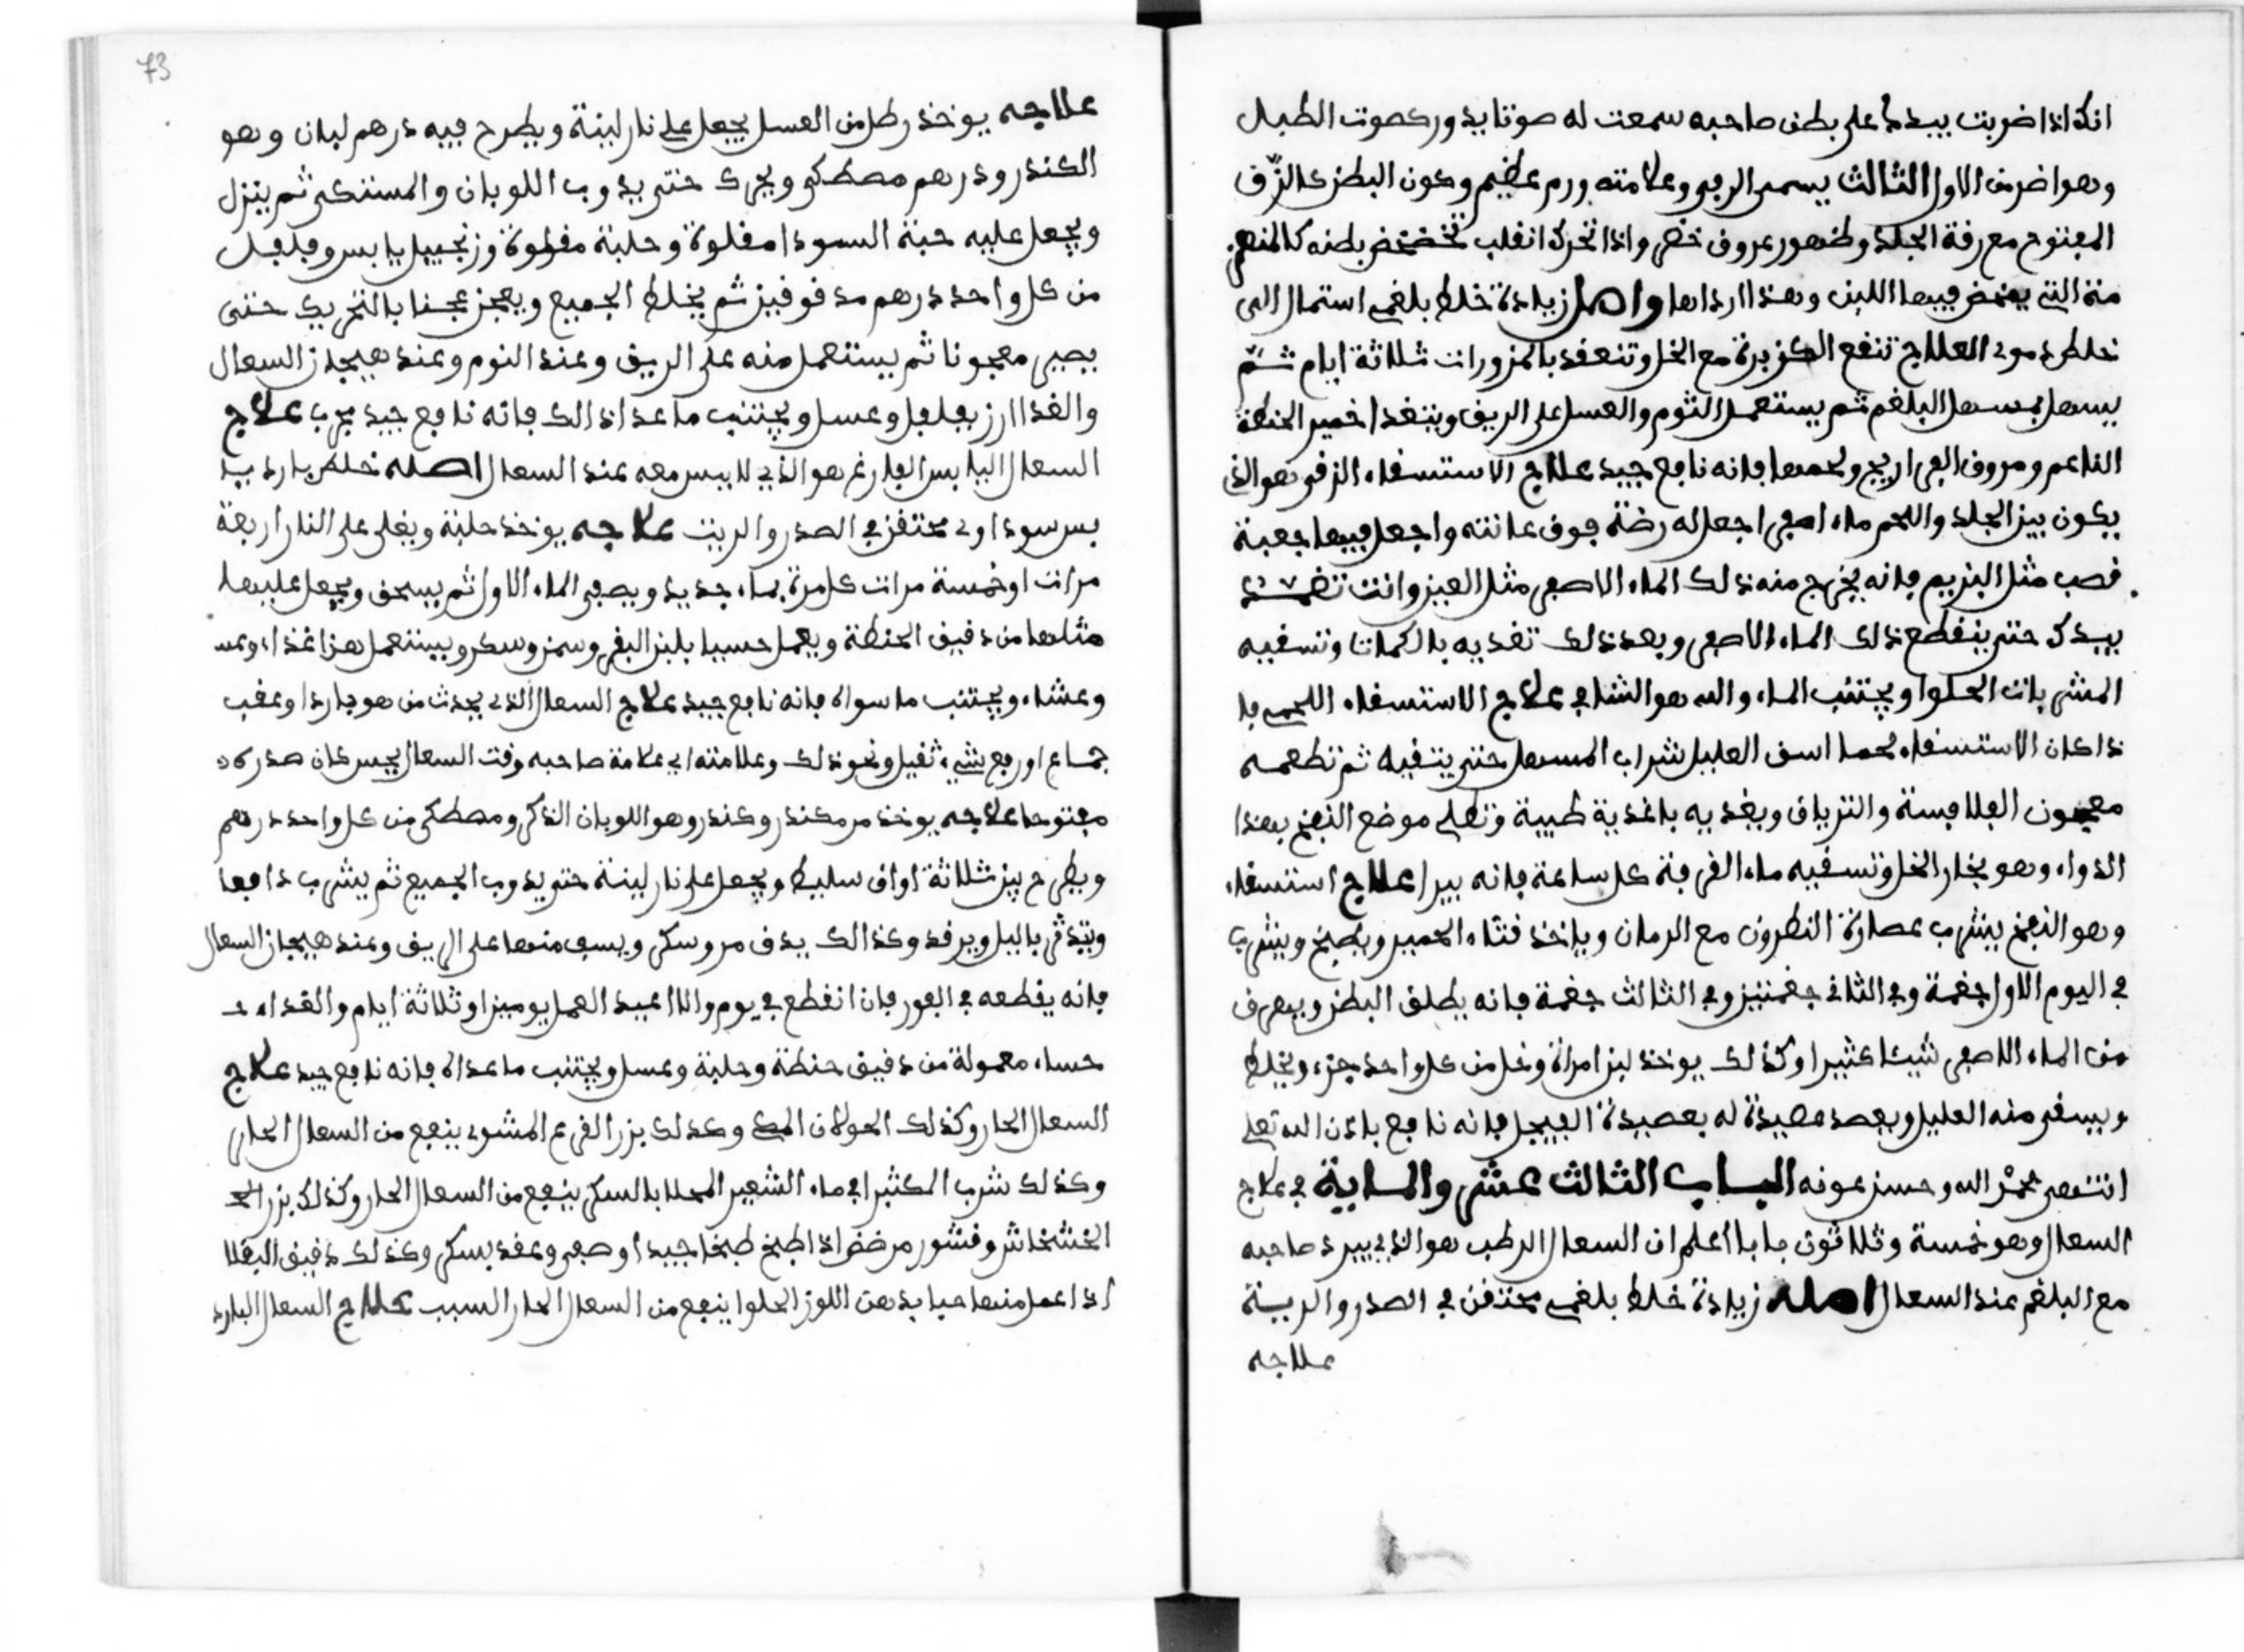 انك اذا ضربت بيدك على بطن صاحبه سمعت له صوتا يدور كصوت الطبل
وهو اضر من الاول الثالث يسمى الزقي وعلامته ورم عظيم وكون البطن كالزق
المفتوح مع رقة الجلد وظهور عروق خضر واذا تحرك انقلب تخضخض بطنه كالمنهى
منة التي يمخض فيها اللبن وهذا ارداها واصل زيادة خلط بلغمي استمال الى
خلط دموي العلاج تنفع الكزبرة مع الخل وتنعقد بالمزورات ثلاثة ايام ثم
يسهل بمسهل البلغم ثم يستعمل الثوم والعسل على الريق ويتغدا خمير الحنطة
الناعم ومروق الفراريج ولحمها فانه نافع جيد علاج الاستسقاء الزقي وهو الذي
يكون بين الجلد واللحم ماء اصفر اجعل له رضة فوق عانته واجعل فيها جعبة
قصب مثل البزيم فانه يخرج منه ذلك الماء الاصفر مثل العين وانت تغمره
بيدك حتى ينقطع ذلك الماء الاصفر وبعد ذلك تغديه بالكمات وتسقيه
المشي بات الحلوا ويجتنب الماء والله هو الشافي علاج الاستسقاء اللحمي فا
ذا كان الاستسقاء لحما اسق العليل شراب المسهل حتى يتقيه ثم تطعمه
معجون الفلافسة والترياق ويغذيه باغذية طيبة وتطلى موضع النفخ بهذا
الدواء وهو بخار الخل وتسقيه ماء القرفة كل ساعة فانه يبرا علاج استسقاء
وهو النفخ يشرب عصارة النطرون مع الرمان وياخذ قثاء الحمير ويطبخ ويشرب
في اليوم الاول جغمة وفي الثاني جغمتين وفي الثالث جغمة فانه يطلق البطن ويهرق
من الماء الاصفر شيئا كثيرا وكذلك يوخذ لبن امراة وخل من كل واحد جزء ويخلط
ويسقى منه العليل ويعصد عصيدة له بعصيدة الفيجل فانه نافع باذن الله تعلى
انتهى بحمد الله وحسن عونه الباب الثالث عشر والماية في علاج
السعال وهو خمسة وثلاثون بابا اعلم ان السعال الرطب هو الذي يبرد صاحبه
مع البلغم عند السعال اصله زيادة خلط بلغمي محتقن في الصدر والريية
علاجه
73
علاجه يوخذ رطل من العسل يجعل على نار لينة ويطرح فيه درهم لبان وهو
الكندر ودرهم مصطكى ويحرك حتى يذوب اللوبان والمستكى ثم ينزل
ويجعل عليه حبة السودا مقلوة وحلبة مقلوة وزنجبيل يابس وفلفل
من كل واحد درهم مدقوقين ثم يخلط الجميع ويعجن عجنا بالتحريك حتى
يصير معجونا ثم يستعمل منه على الريق وعند النوم وعند هيجان السعال
والغذا ارز بفلفل وعسل ويجتنب ما عدا ذالك فانه نافع جيد مجرب علاج
السعال اليابس الفارغ هو الذي لا يبس معه عند السعال اصله خلط بارد يا
بس سوداوي محتقن في الصدر والريت علاجه يوخذ حلبة ويغلى على النار اربعة
مرات او خمسة مرات كل مرة بماء جديد ويصفى الماء الاول ثم يسحق ويجعل عليها
مثلها من دقيق الحنطة ويعمل حسيا بلبن البقر وسمن وسكر ويستعمل هذا غذاء وعسـ
وعشاء ويجتنب ما سواه فانه نافع جيد علاج السعال الذي يحدث من هو بارد او عقب
جماع او رفع شيء ثقيل ونحو ذلك وعلامته اي علامة صاحبه وقت السعال يحس كان صدره
مفتوحا علاجه يوخذ مر مكندر وكندر وهو اللوبان الذكر ومصطكى من كل واحد درهم
ويطرح بين ثلاثة اواق سليط ويجعل على نار لينة حتى يذوب الجميع ثم يشرب دافيا
ويتدثر باليل ويرقد وكذالك يدق مر وسكر ويسف منها على الريق وعند هيجان السعال
فانه يقطعه في الفور فان انقطع في يوم والا اعيد العمل يومين او ثلاثة ايام والغداء
حساء معمولة من دقيق حنطة وحلبة وعسل ويجتنب ما عداه فانه نافع جيد علاج
السعال الحار وكذلك الحولان وكذلك بزر القرع المشوي ينفع من السعال الحار
وكذلك شرب الكثيرا في ماء الشعير المحلا بالسكر ينفع من السعال الحار وكذلك بزر
الخشخاش وقشور مرضض اذا طبخ طبخا جيدا وصفى وعقد بسكر وكذلك دقيق البقلا
اذا عمل منها حيا بدهن اللوز الحلوا ينفع من السعال الحار السبب علاج السعال البارد